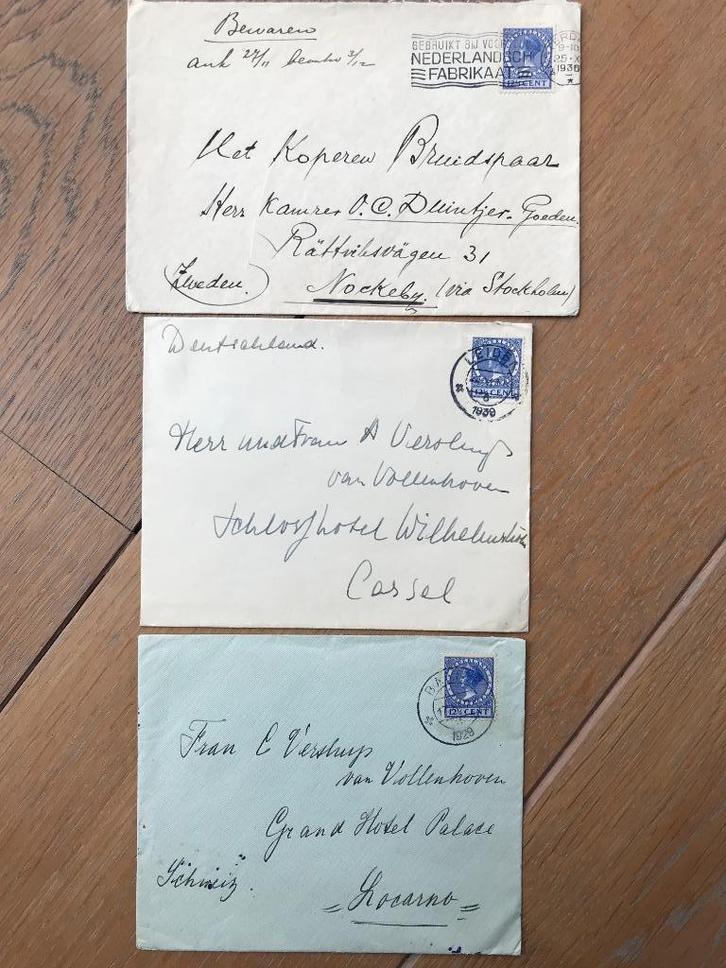 Bewaren
ank 27/11 beantw 3/12
GEBRUIKT BIJ VOO
NEDERLANDSCH
FABRIKAAT
RDA
9-10
25·X
1936
12½ CENT
Het Koperen Bruidspaar
Herr Kamrer O.C. Duintjer-Goeden.
Rättviksvägen 31
Zweden.
Nockeby. (via Stockholm)
Deutschland.
LEIDEN
1939
12½ CENT
Herr und Frau A Versluys
van Vollenhoven
Schlosshotel Wilhelmshöhe
Cassel
BA
1929
12½ CENT
Frau C Versluys
van Vollenhoven
Grand Hotel Palace
Schweiz.
Locarno